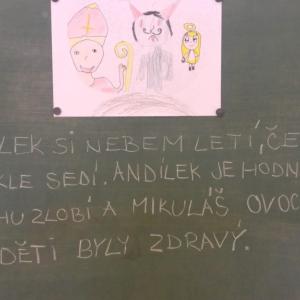 LEK SI NEBEM LETÍ, ČE
KLE SEDÍ. ANDÍLEK JE HODN
HU ZLOBÍ A MIKULÁŠ OVOC
DĚTI BYLY ZDRAVÝ.